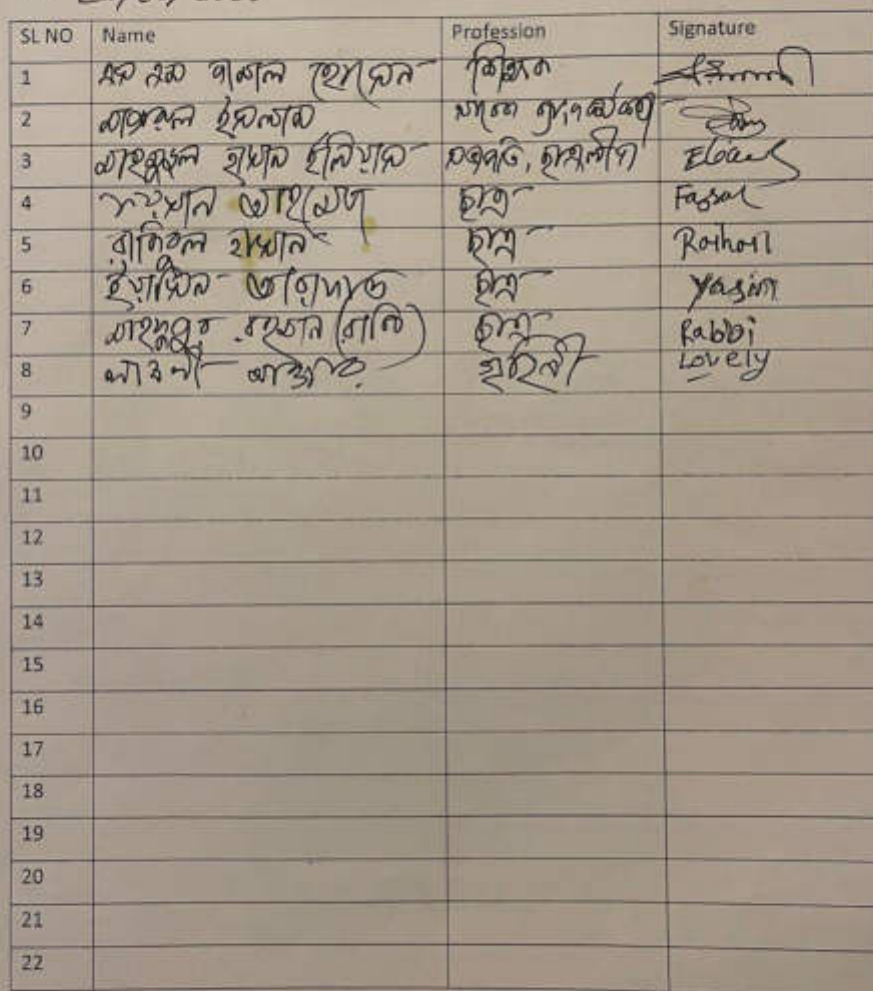 SL NO Name Profession Signature
1 এস এম কামাল হোসেন শিক্ষক
2 ইসলাম সাবেক
3 মাহমুদুল হাসান ইলিয়াস সভাপতি, ছাত্রলীগ
4 ফয়সাল আহমেদ ছাত্র Faysal
5 রাকিবুল হাসান ছাত্র Raihan
6 ইয়াসিন আরাফাত ছাত্র Yasin
7 মাহফুজুর রহমান (রাব্বি) ছাত্র Rabbi
8 লাভলী আক্তার গৃহিনী Lovely
9
10
11
12
13
14
15
16
17
18
19
20
21
22